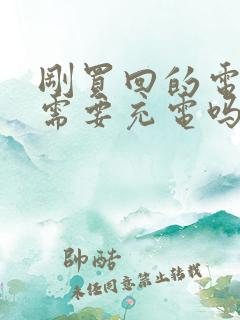 剛買回的電
需要充電嗎
帥酷
未经同意禁止转载